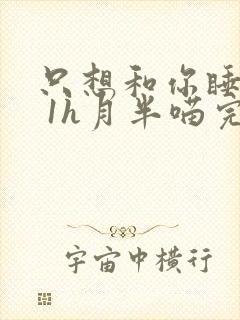 只想和你睡
1h月半喵完
宇宙中横行